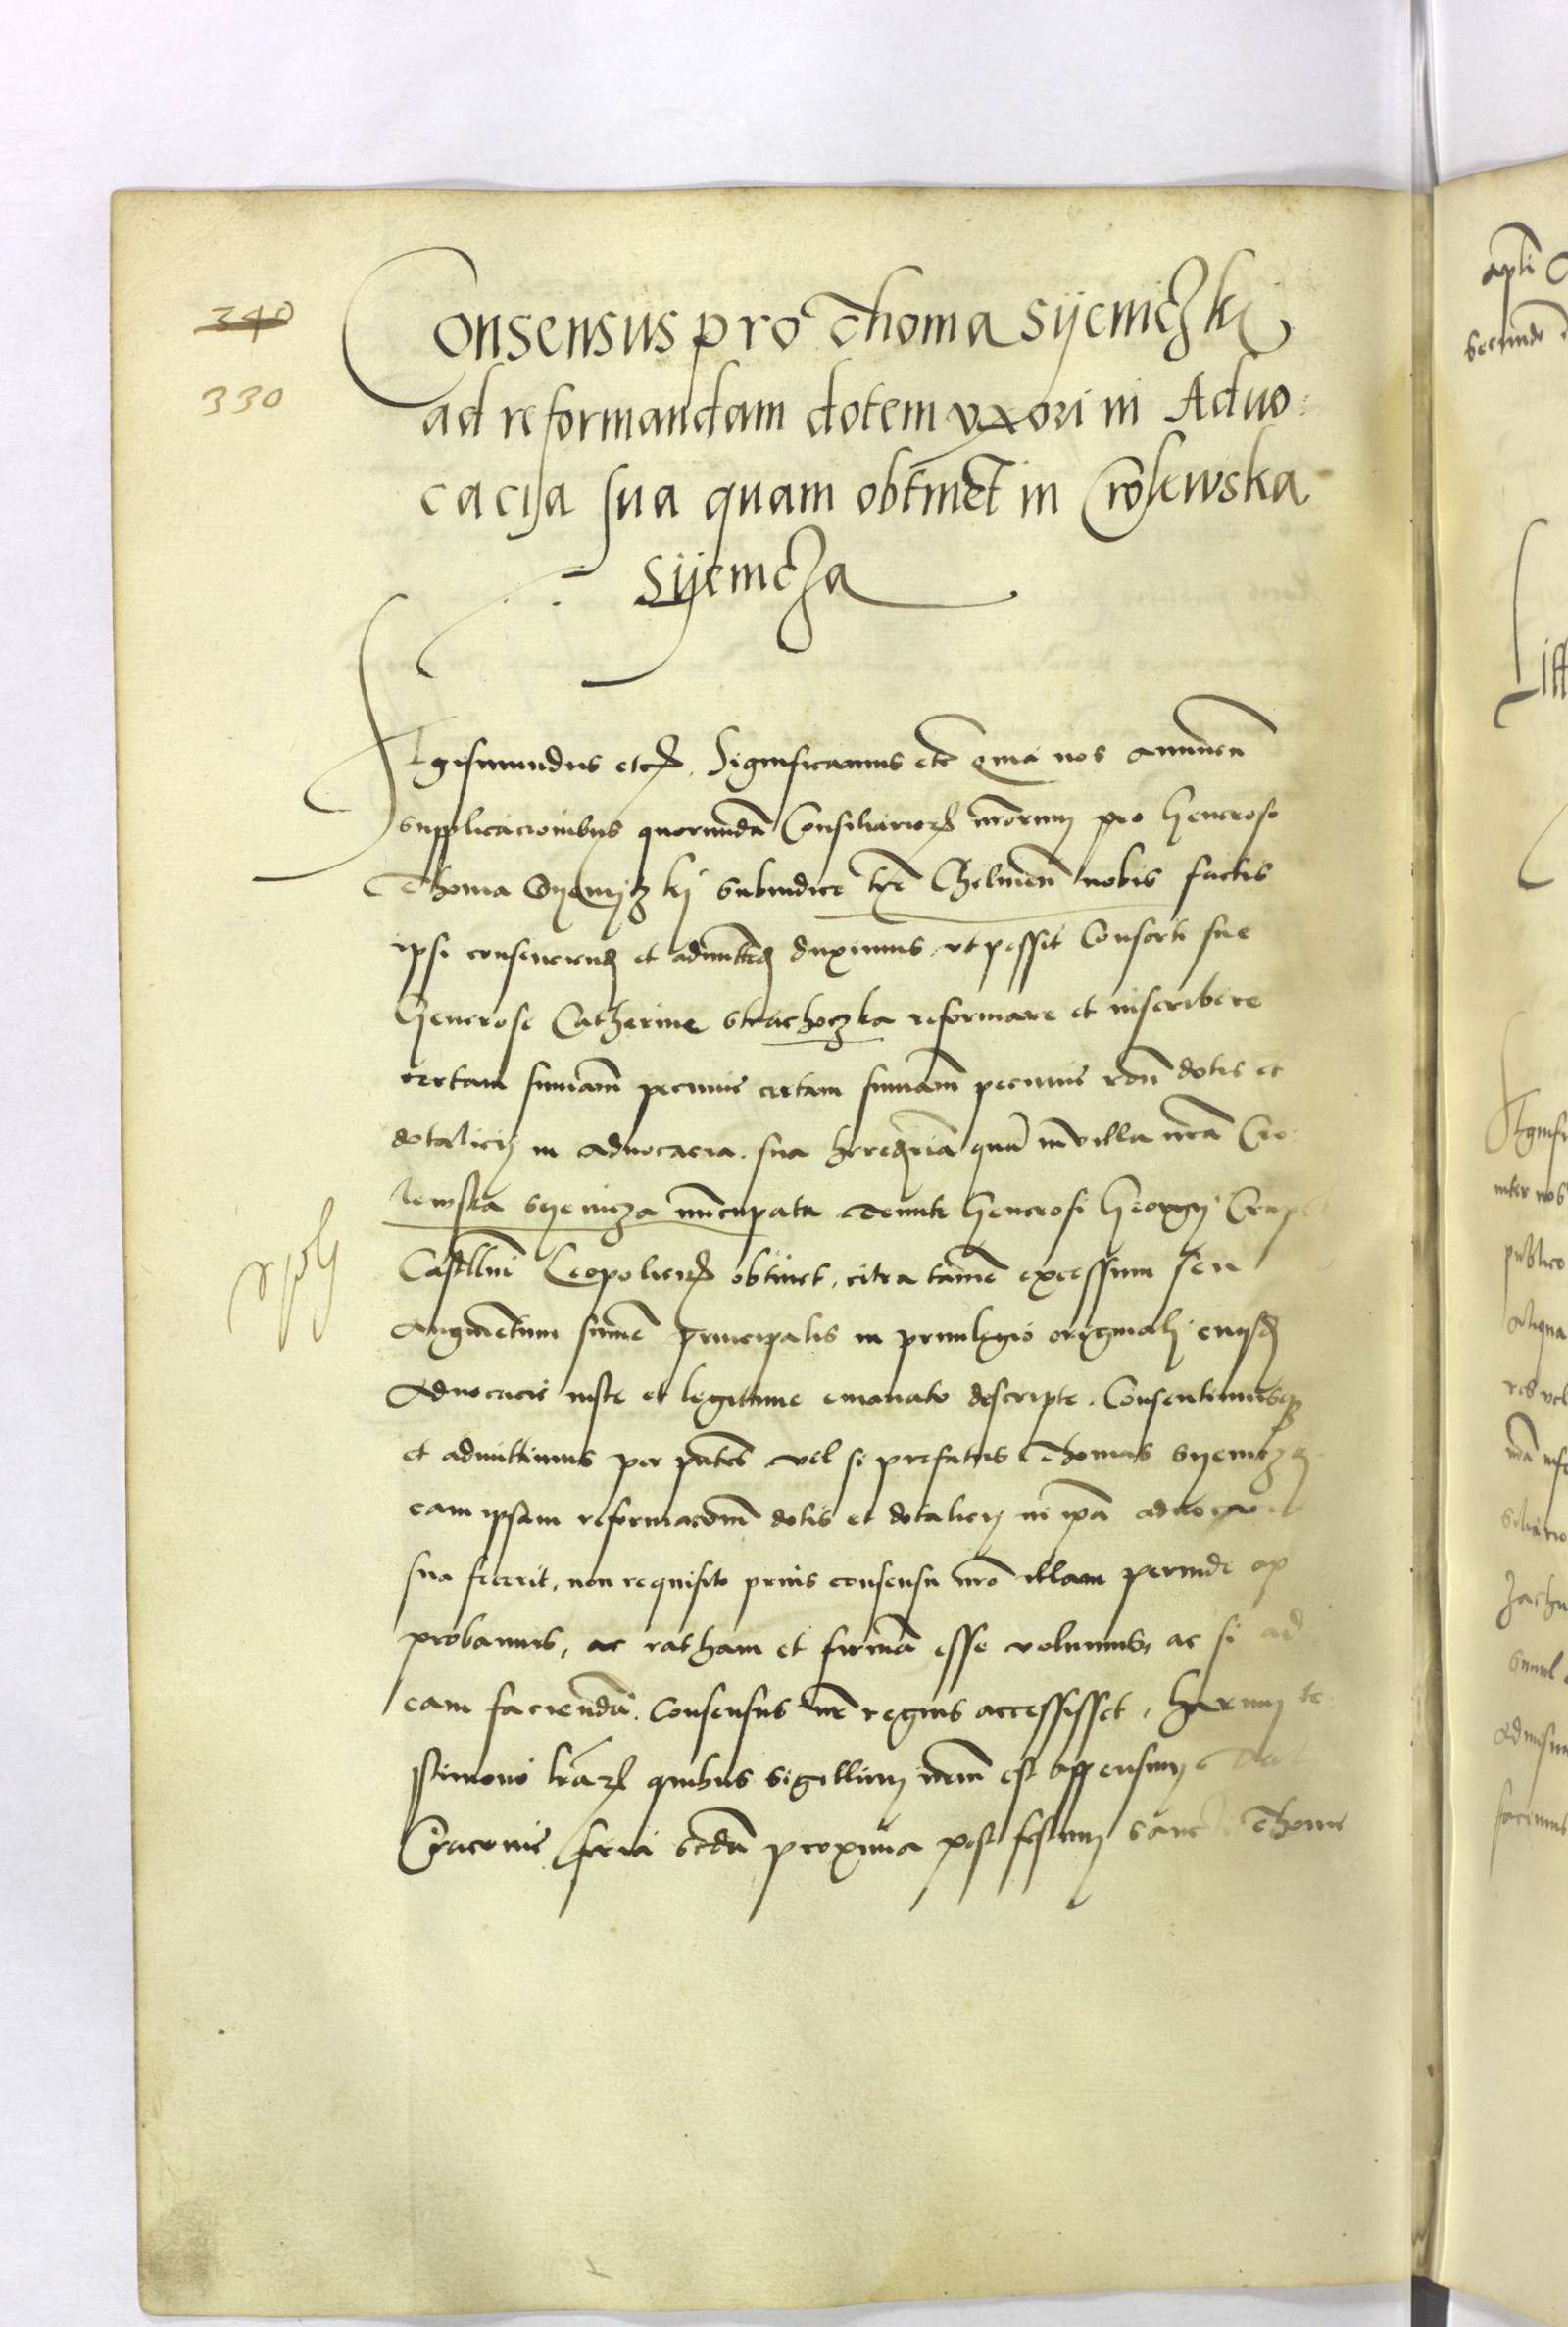 340
330
Consensus pro Thoma Syeniczki
ad reformandam dotem uxori in Aduo:
cacija sua quam obtinet in Crolewska
Syenicza
Sigismundus etc. Significamus etc quia nos annuen
supplicacionibus quorundã Consiliarior nrorum pro Generoso
Thoma Syenyczkij Subiudice tre Chelmen̄ nobis factis
ipsi consenciend et admittend duximus, vt possit Consorti sue
Generose Catherine Strachoczka reformare et inscribere
certam summam pecunie certam summam pecunie rōn dotis et
dotalicij in aduocacia sua quã in villa nrã Cro
lewska Syenicza nũcupata Tenute Generosi Georgij
Castellni Leopolien obtinet, citra tamẽ excessum seu
augmentum summe principalis in priuilegio originali eiusd
Aduocacie iuste et legitime emanato descripte. Consentimusq
et admittimus per pñtes vel si prefatus Thomas Syeniczki
eam ipsam reformacõm dotis et dotalicij in ipã aduocacia
sua fecerit, non requisito prius consensu nrõ illam perinde ap
probamus, ac ratham et firmã esse volumus, ac si ad
eam faciendã Consensus nr̃ regius accessisset, harum te
stimonio lrãr quibus sigillum nrm̃ est appensum Dat
Cracouie feria scdã proxima post festum sancti Thome